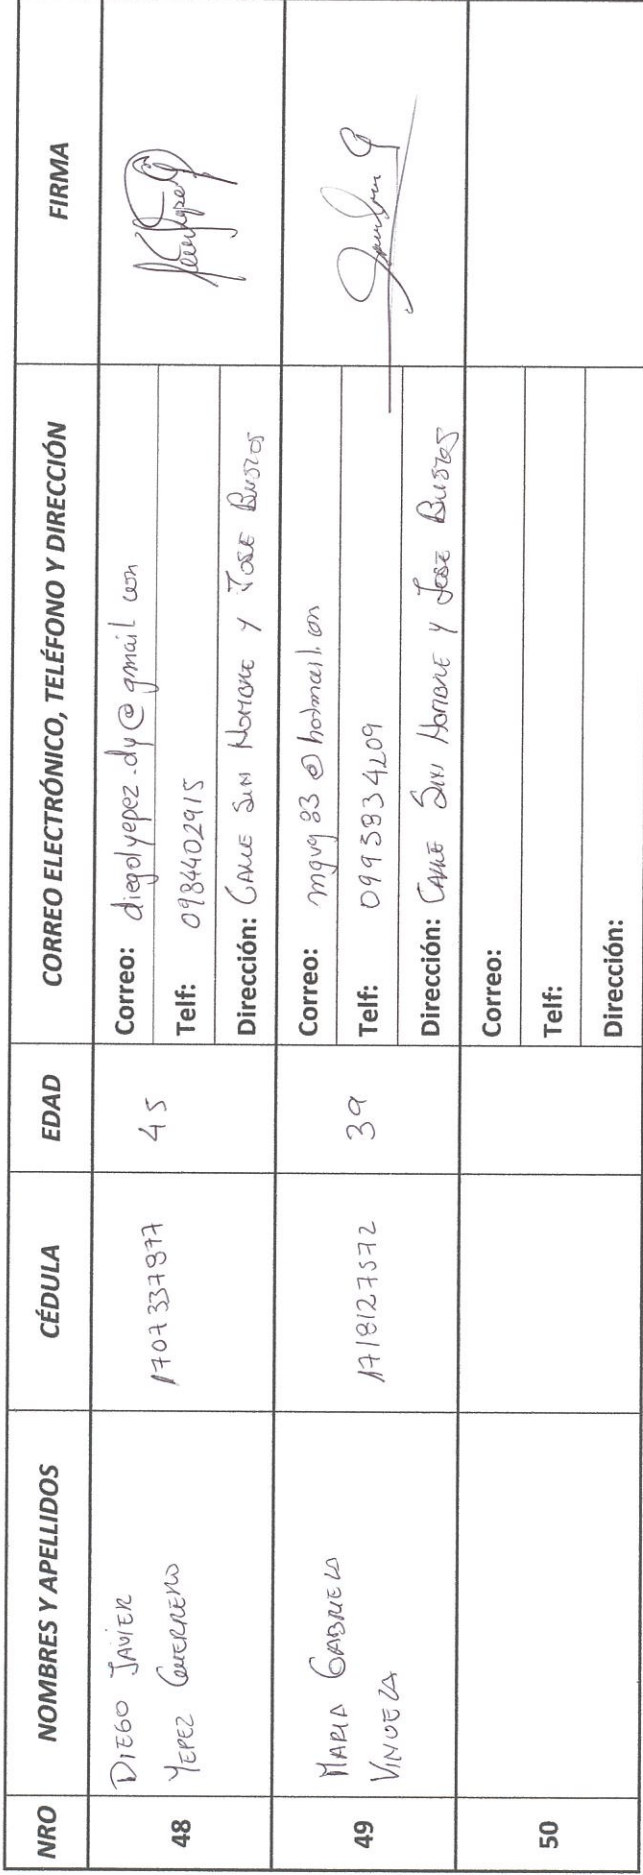 NRO NOMBRES Y APELLIDOS CÉDULA EDAD CORREO ELECTRÓNICO, TELÉFONO Y DIRECCIÓN FIRMA
48
DIEGO JAVIER
YEPEZ GUERRERO
1707337877
45
Correo: diegolyepez.dy@gmail com
Telf: 0984402915
Dirección: CALLE SIN NOMBRE Y JOSE BUSTOS
49
MARIA GABRIELA
VINUEZA
1718127572
39
Correo: mgvg83@hotmail.com
Telf: 0995834209
Dirección: CALLE SIN NOMBRE Y JOSE BUSTOS
50
Correo:
Telf:
Dirección: